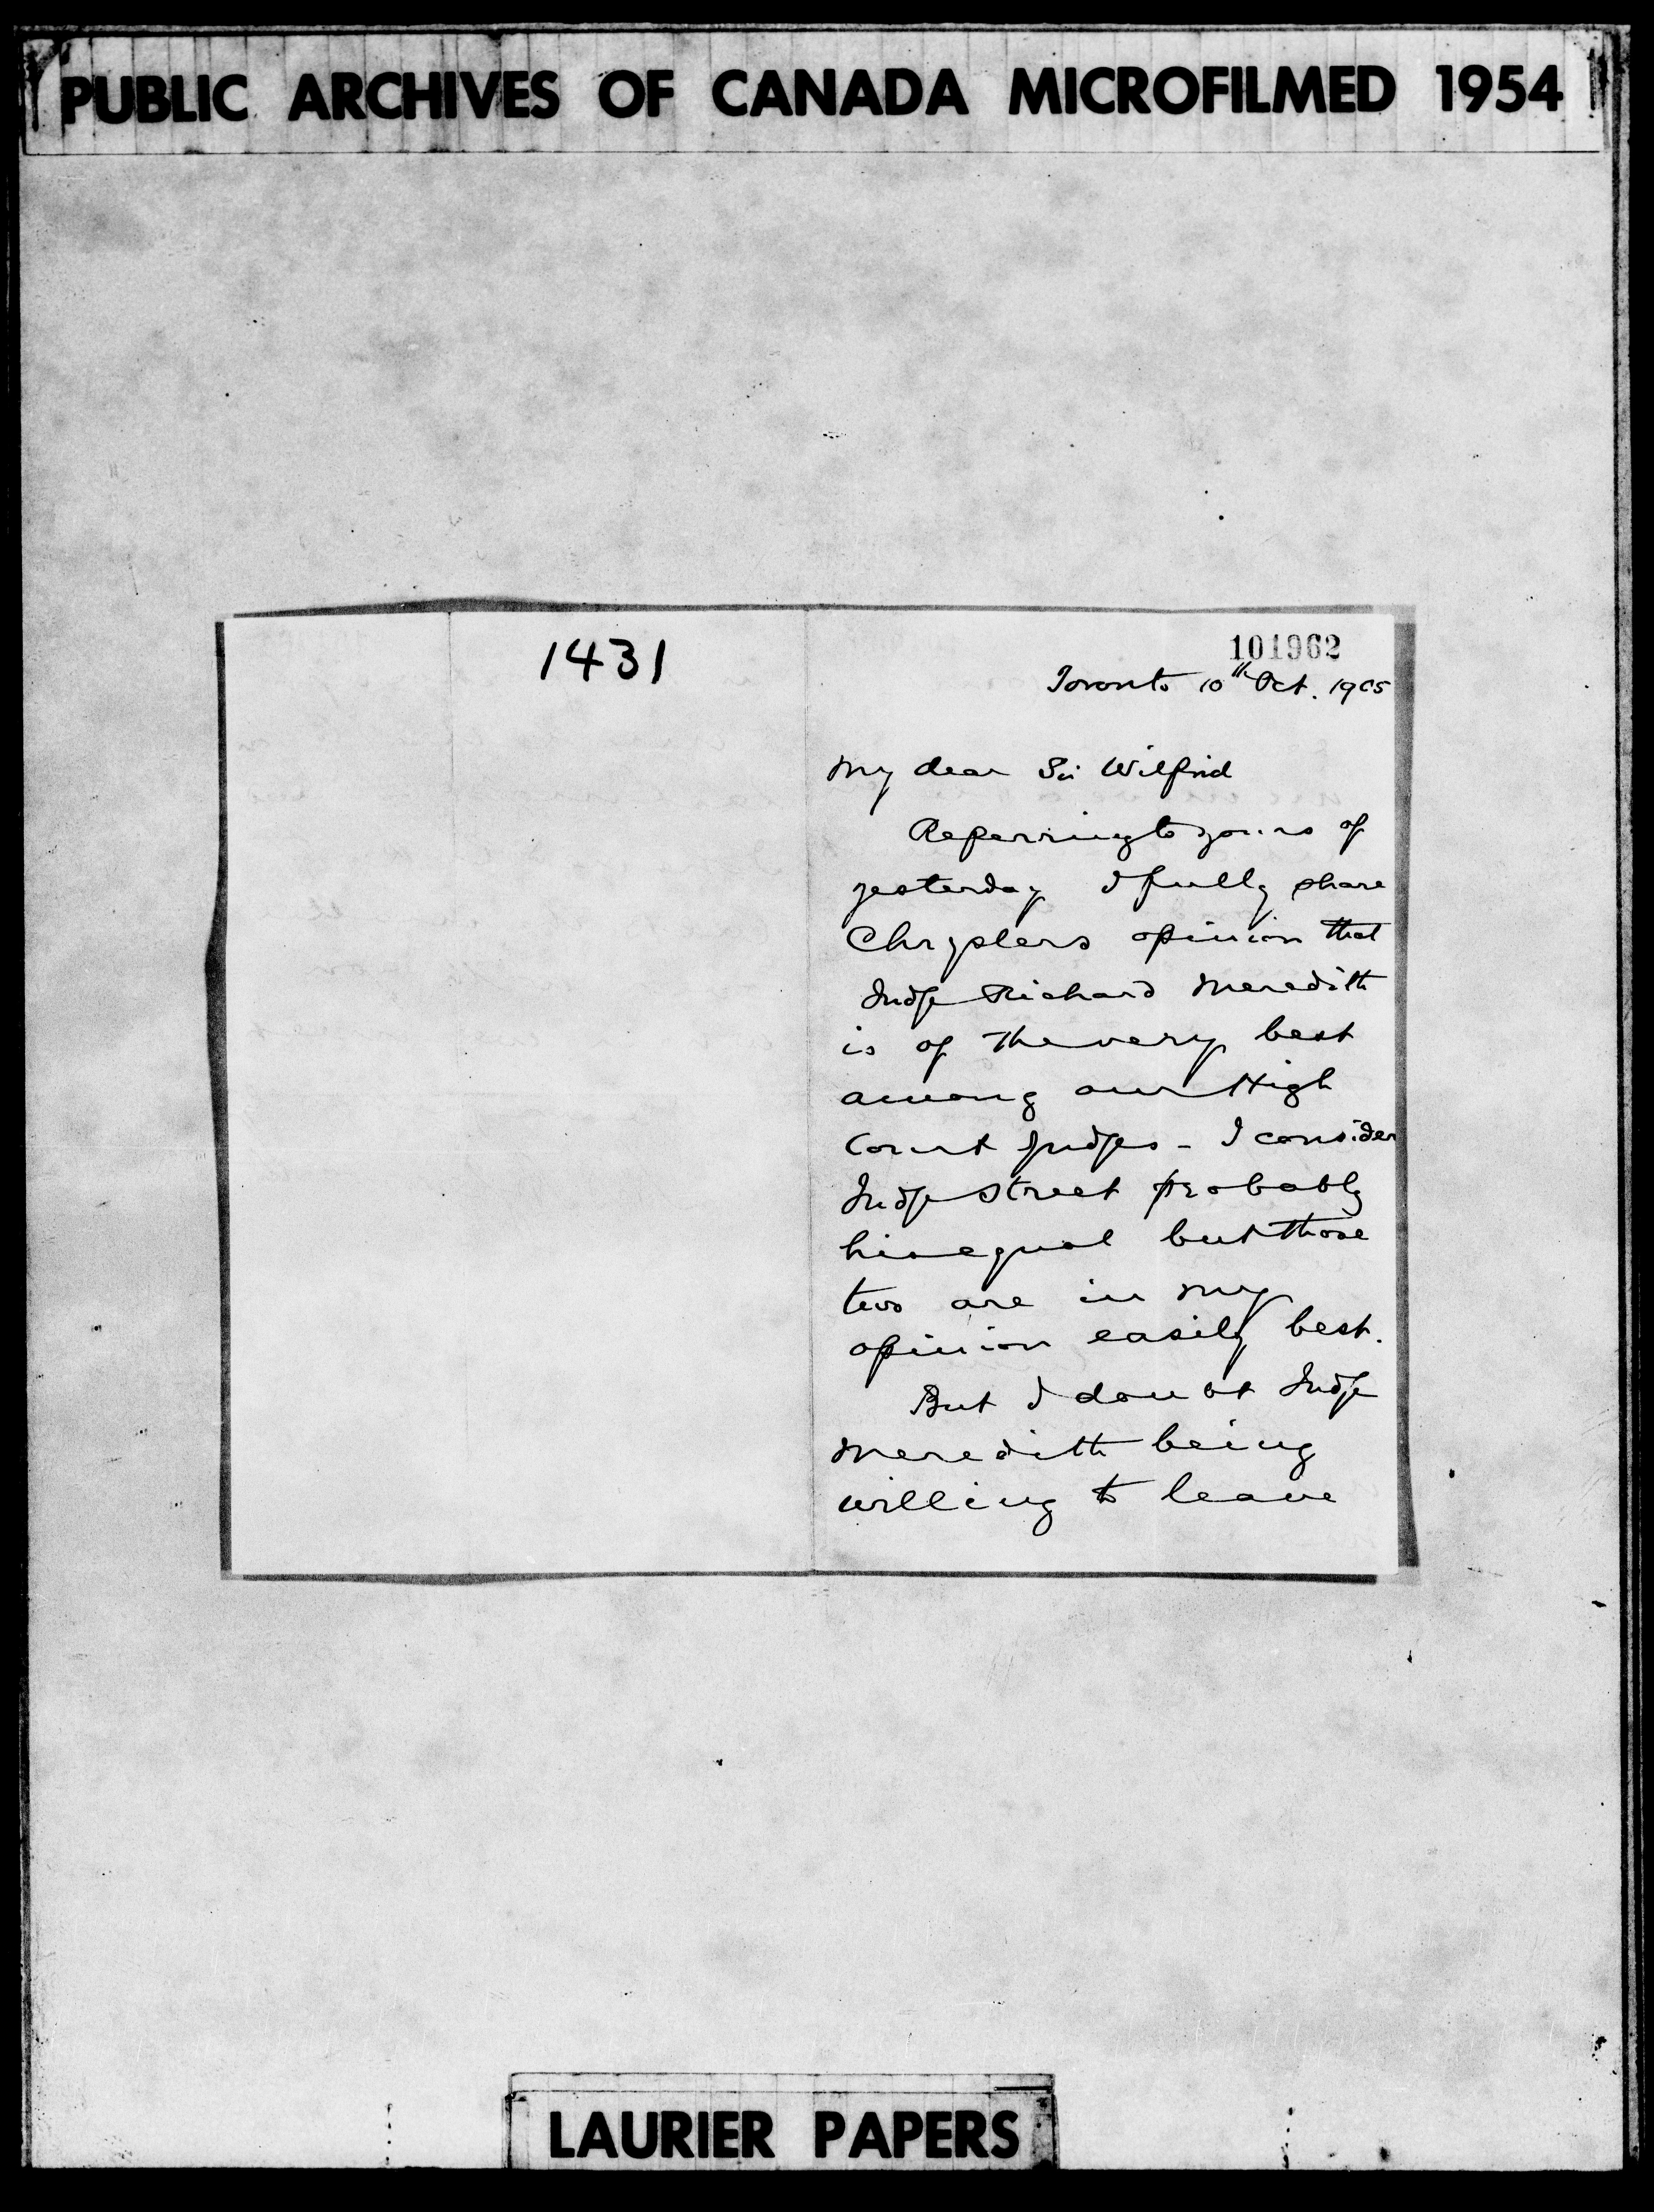 PUBLIC ARCHIVES OF CANADA MICROFILMED 1954
1431
101962
Toronto 10th Oct. 1905
My dear Sir Wilfrid
Referring to yours of
yesterday I fully share
Chryslers opinion that
Judge Richard Meredith
is of the very best
among our High
Court Judges - I consider
Judge Street probably
his equal but those
two are in my
opinion easily best.
But I doubt Judge
Meredith being
willing to leave
LAURIER PAPERS